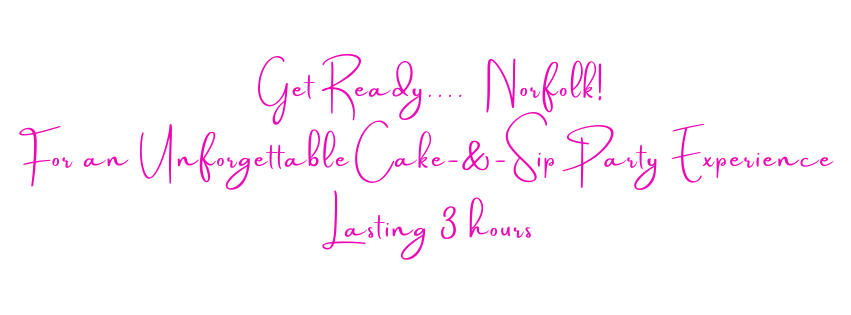 Get Ready.... Norfolk!
For an Unforgettable Cake-&-Sip Party Experience
Lasting 3 hours